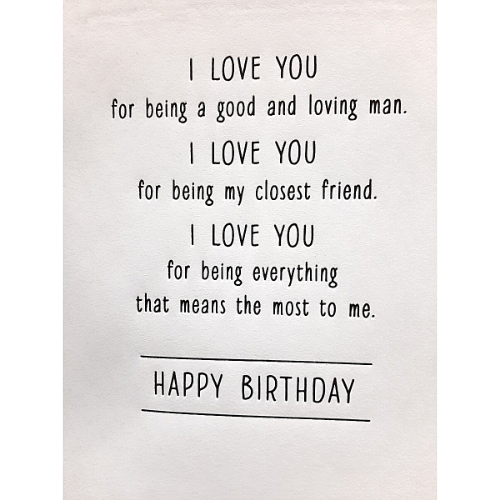 I LOVE YOU
for being a good and loving man.
I LOVE YOU
for being my closest friend.
I LOVE YOU
for being everything
that means the most to me.
HAPPY BIRTHDAY